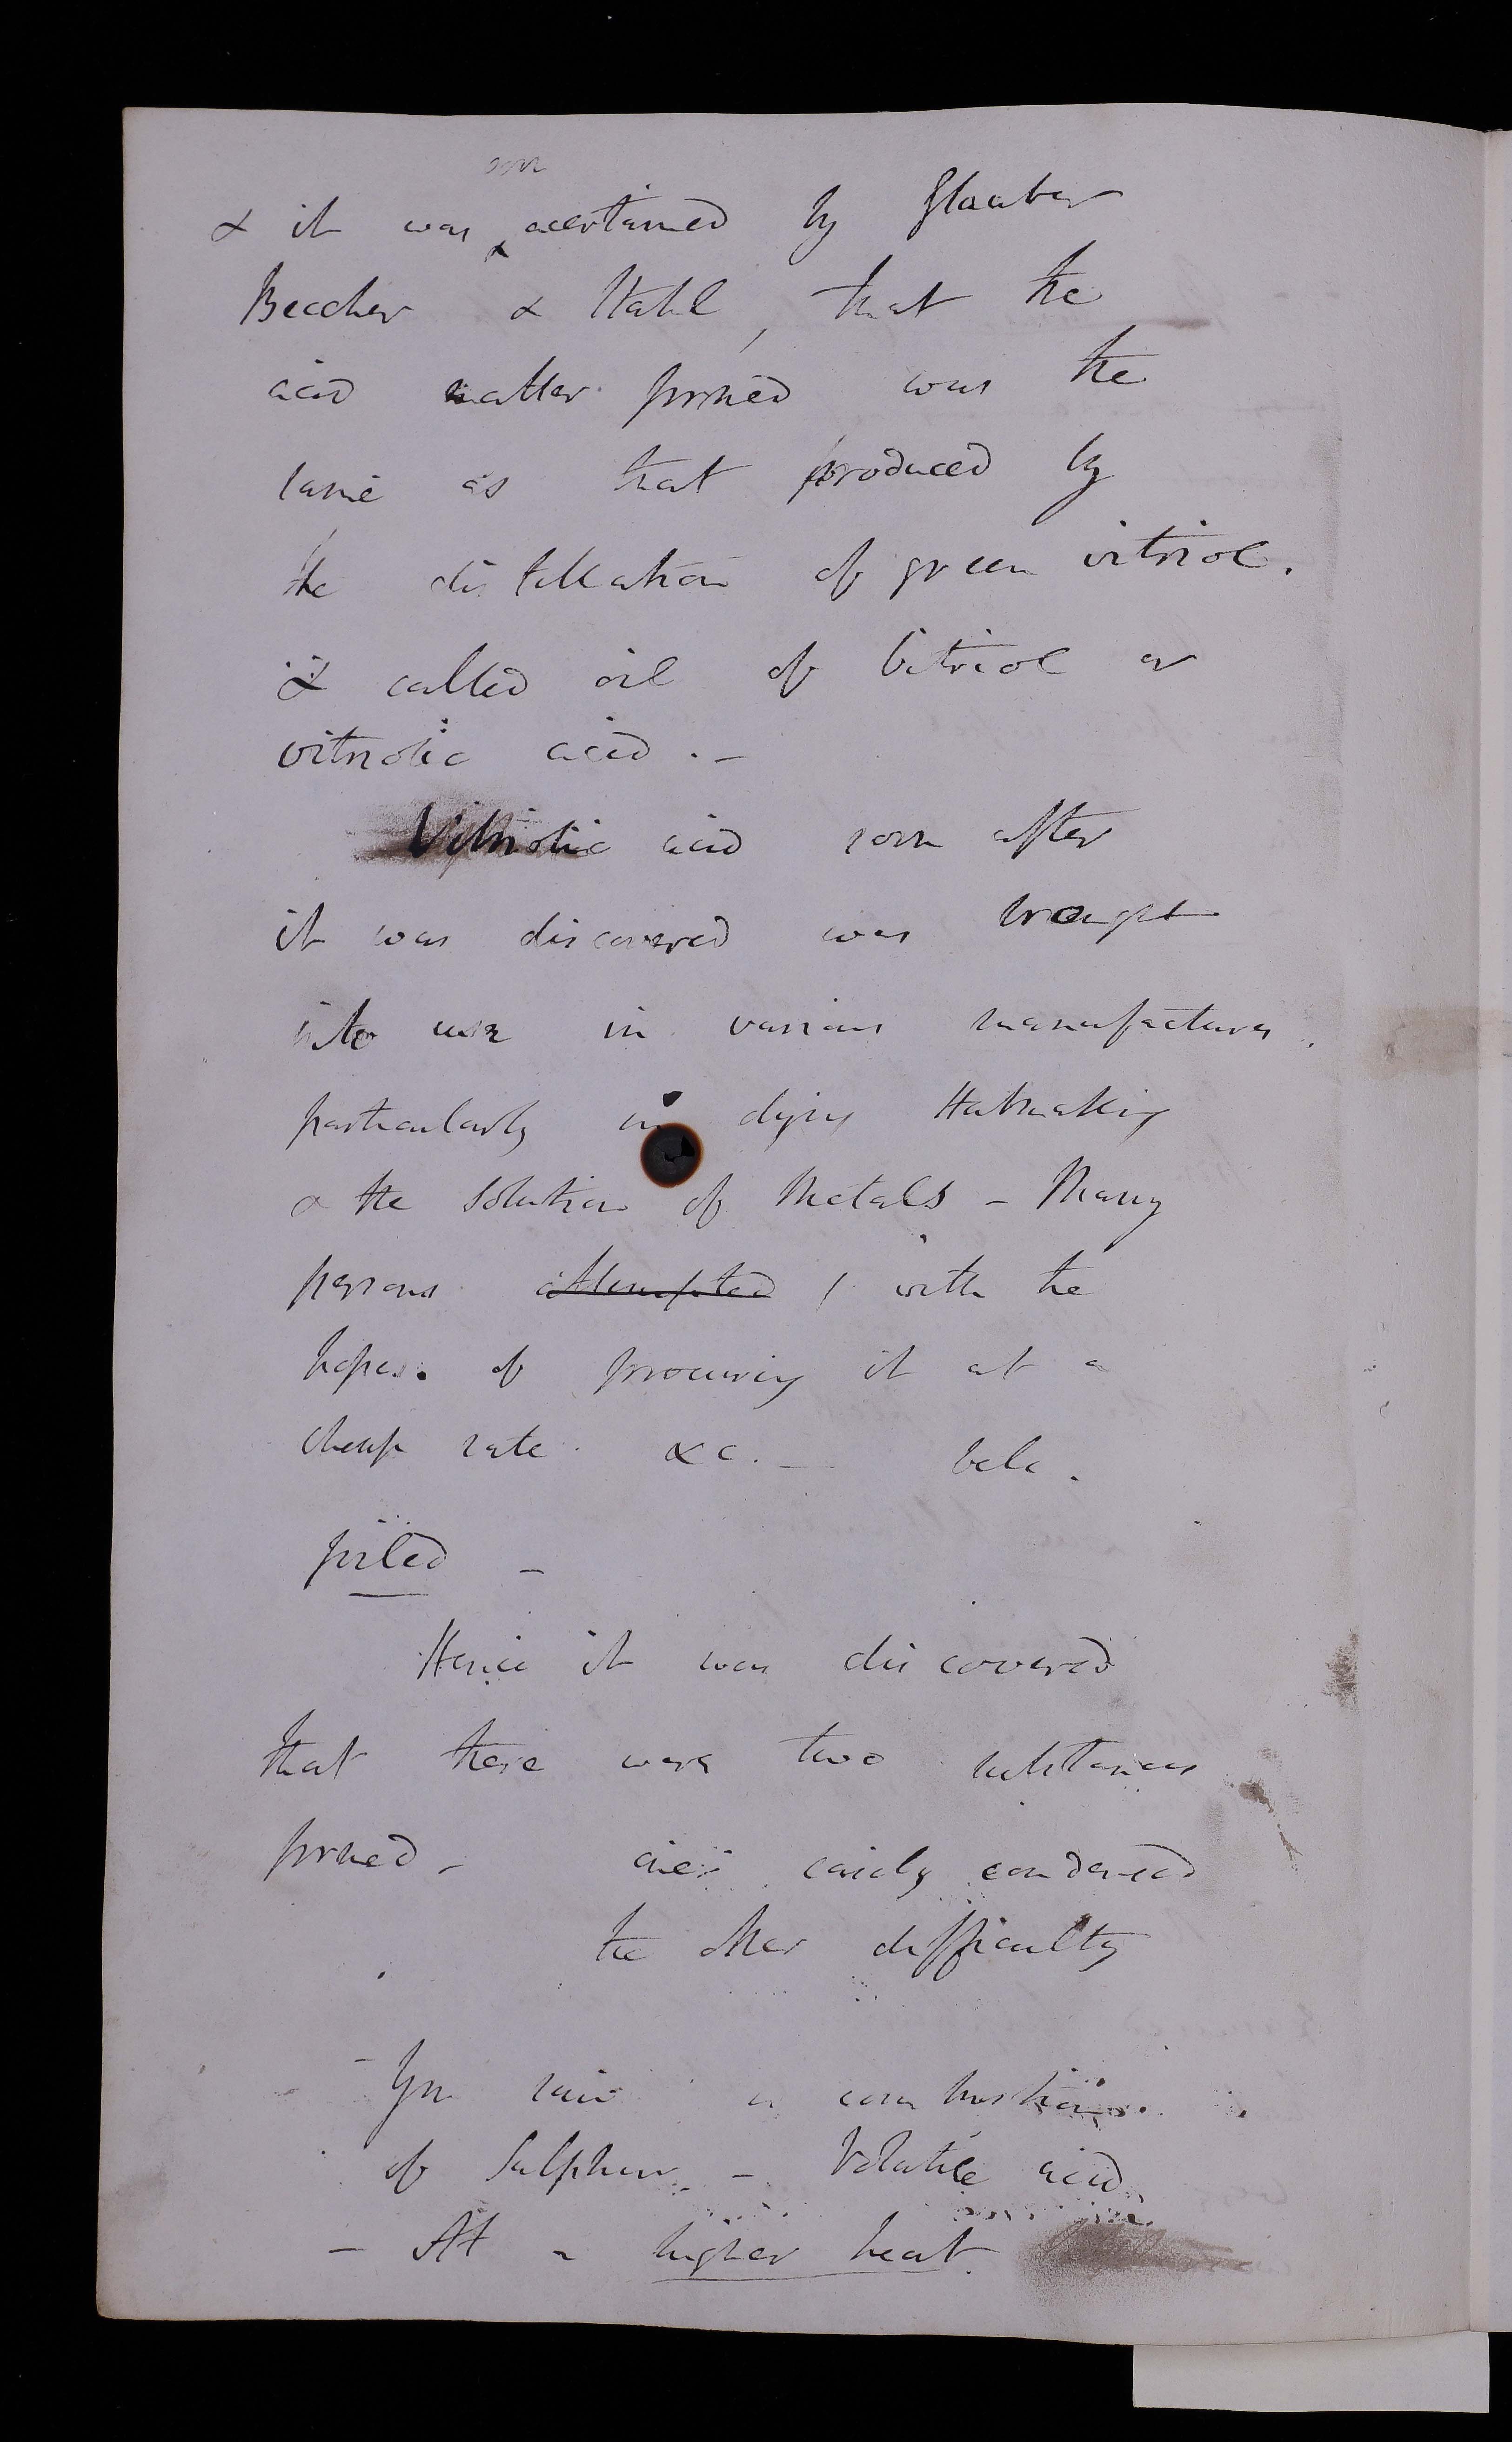 soon
& it was ^ acertained by Glauber
Beccher & Stahl, that the
acid matter formed was the
same as that produced by
the distillation of green vitriol.
& called oil of Vitriol or
vitriolic acid. -
Vitriolic acid soon after
it was discovered was brought
into use in various manufactures.
particularly in dying Hatmaking
& the solution of Metals - Many
persons attempted / with the
hopes. of procuring it at a
cheap rate. &c. -
foiled -
Hence it was discovered
that there were two substances
formed - one easily condensed
the other difficulty
- In combustion.
of Sulphur - Volatile acid
- At a higher heat.